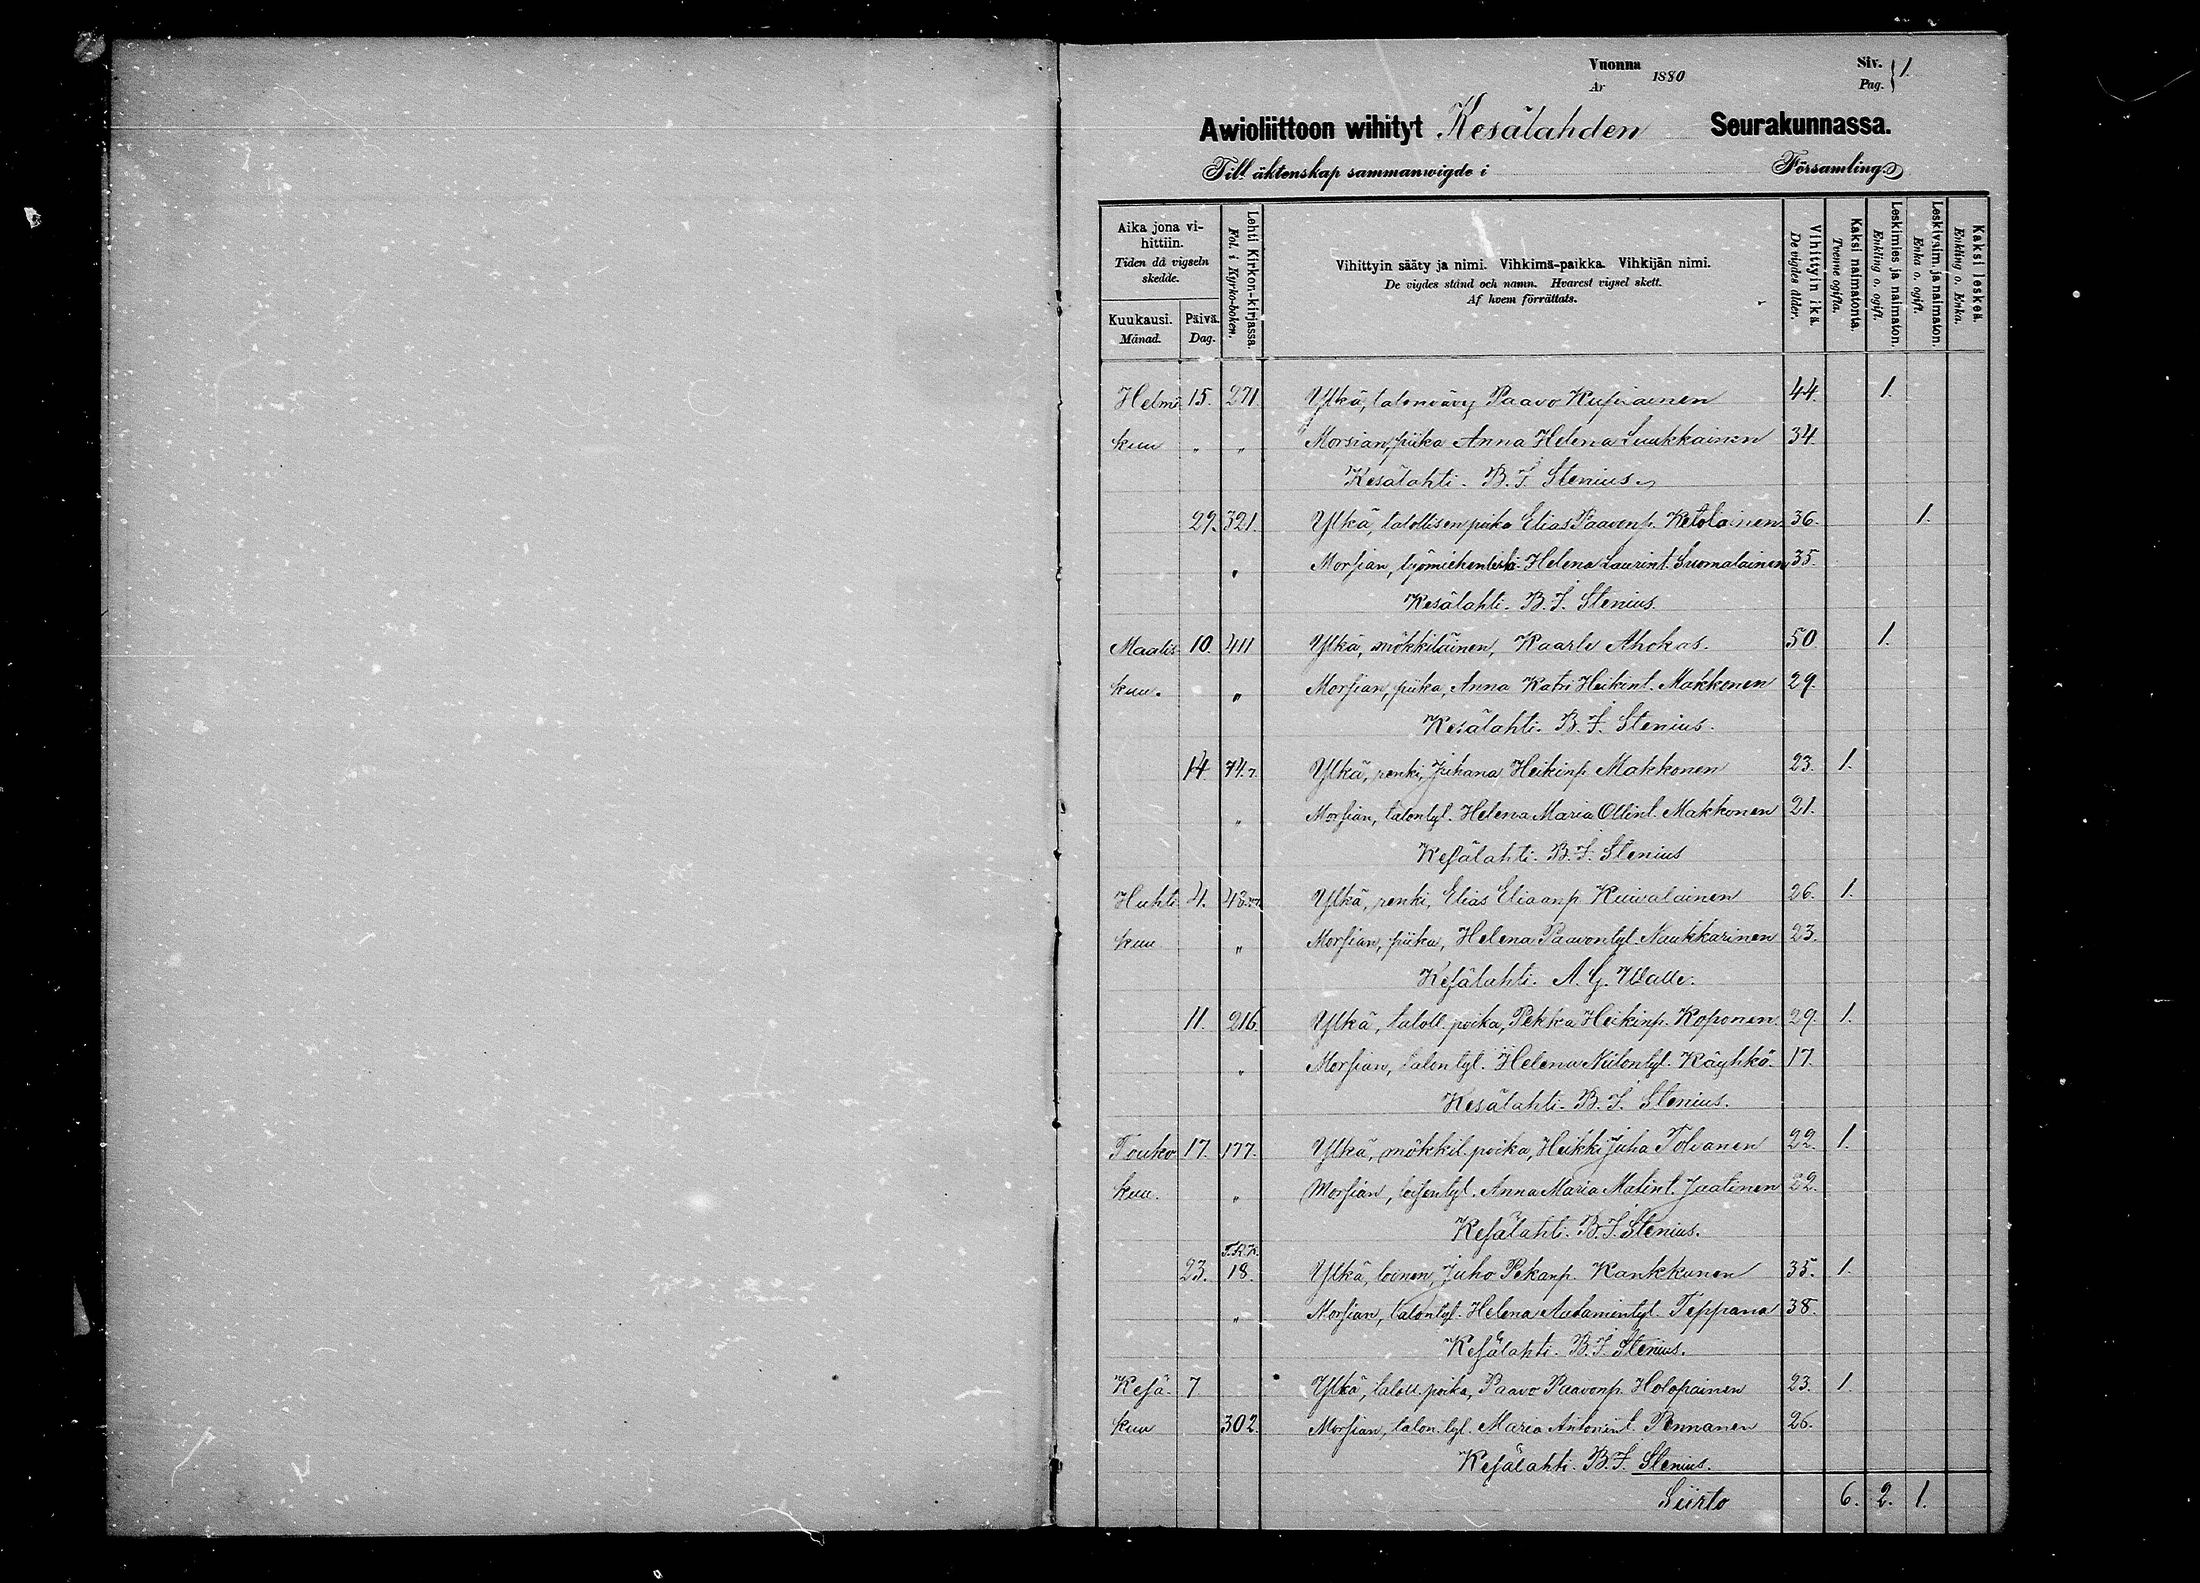 Vuonna 1880 Siv. 1.
År Pag.
Awioliittoon wihityt Kesälahden Seurakunnassa.
Till äktenskap sammanwigde i Församling.
Aika jona vihittiin.
Tiden då vigseln skedde.
Kuukausi. Månad.
Päivä. Dag.
Lehti Kirkon-kirjassa. Fol. i Kyrko-boken.
Vihittyin sääty ja nimi. Vihkimä-paikka. Vihkijän nimi.
De vigdes stånd och namn. Hvarest vigsel skett.
Af hvem förrättats.
Vihittyin ikä. De vigdes ålder.
Kaksi naimatonta. Tvenne ogifta.
Leskimies ja naimaton. Enkling o. ogift.
Leskivaim. ja naimaton. Enka o. ogift.
Kaksi leskeä. Enkling o. Enka.
Helmi 15. 271. Ylkä, talonvävy Paavo 44. 1.
kuu " " Morsian, piika Anna Helena Luukkainen 34.
Kesälahti. B. J. Stenius.
29. 321. Ylkä, talollisen poika Elias Paavonp. Ketolainen 36. 1.
" Morsian, työmiehenleski Helena Laurint. Suomalainen 35.
Kesälahti. B. J. Stenius.
Maalis 10. 411 Ylkä, mökkiläinen, Kaarle Ahokas. 50 1.
kuu. " Morsian, piika, Anna Katri Heikint. Makkonen 29.
Kesälahti. B. J. Stenius.
14. Ylkä, renki, Juhana Heikinp. Makkonen 23. 1.
" Morsian, talontyt. Helena Maria Ollint. Makkonen 21.
Kesälahti. B. J. Stenius
Huhti 4. Ylkä, renki, Elias Eliaanp. Kuivalainen 26. 1.
kuu " Morsian, piika, Helena Paavontyt. Naukkarinen 23.
Kesälahti. A. G. Walle.
11. 216. Ylkä, taloll. poika, Pekka Heikinp. Koponen. 29. 1.
" Morsian, talontyt. Helena Niilontyt. Käyhkö. 17.
Kesälahti. B. J. Stenius.
Touko 17. 177. Ylkä, mökkil. poika, Heikki Juha Tolvanen 22. 1.
kuu. " Morsian, loisentyt. Anna Maria Matint. Jaatinen 22.
Kesälahti. B. J. Stenius.
T.R.K.
23. 18. Ylkä, loinen, Juho Pekanp. Kankkunen 35. 1.
" Morsian, talontyt. Helena Aadamintyt. Teppana 38.
Kesälahti. B. J. Stenius.
Kesä- 7 Ylkä, taloll. poika, Paavo Paavonp. Holopainen 23. 1.
kuu 302. Morsian, talon. tyt. Maria Antonint. Pennanen 26.
Kesälahti. B. J. Stenius.
Siirto 6. 2. 1.